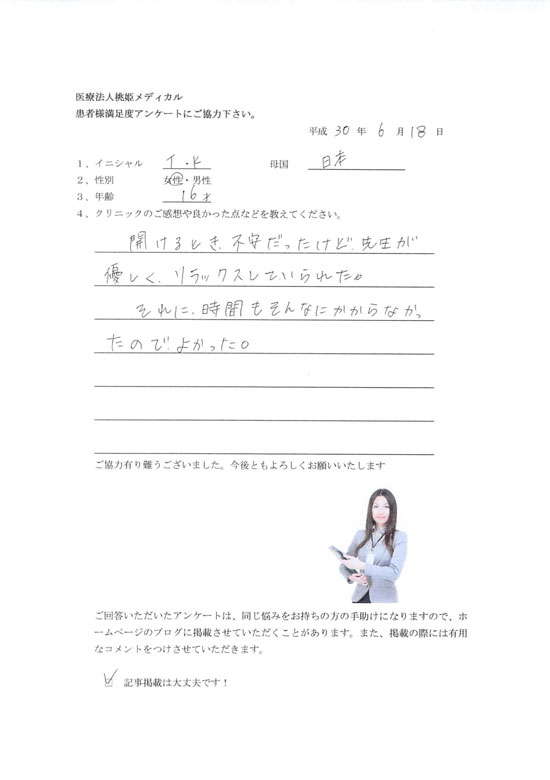 医療法人桃姫メディカル
患者様満足度アンケートにご協力下さい。
平成 30 年 6 月 18 日
1、イニシャル I・K 母国 日本
2、性別 女性・男性
3、年齢 16 才
4、クリニックのご感想や良かった点などを教えてください。
開けるとき、不安だったけど、先生が
優しく、リラックスしていられた。
それに、時間もそんなにかからなかっ
たので、よかった。
ご協力有り難うございました。今後ともよろしくお願いいたします
ご回答いただいたアンケートは、同じ悩みをお持ちの方の手助けになりますので、ホ
ームページのブログに掲載させていただくことがあります。また、掲載の際には有用
なコメントをつけさせていただきます。
記事掲載は大丈夫です！